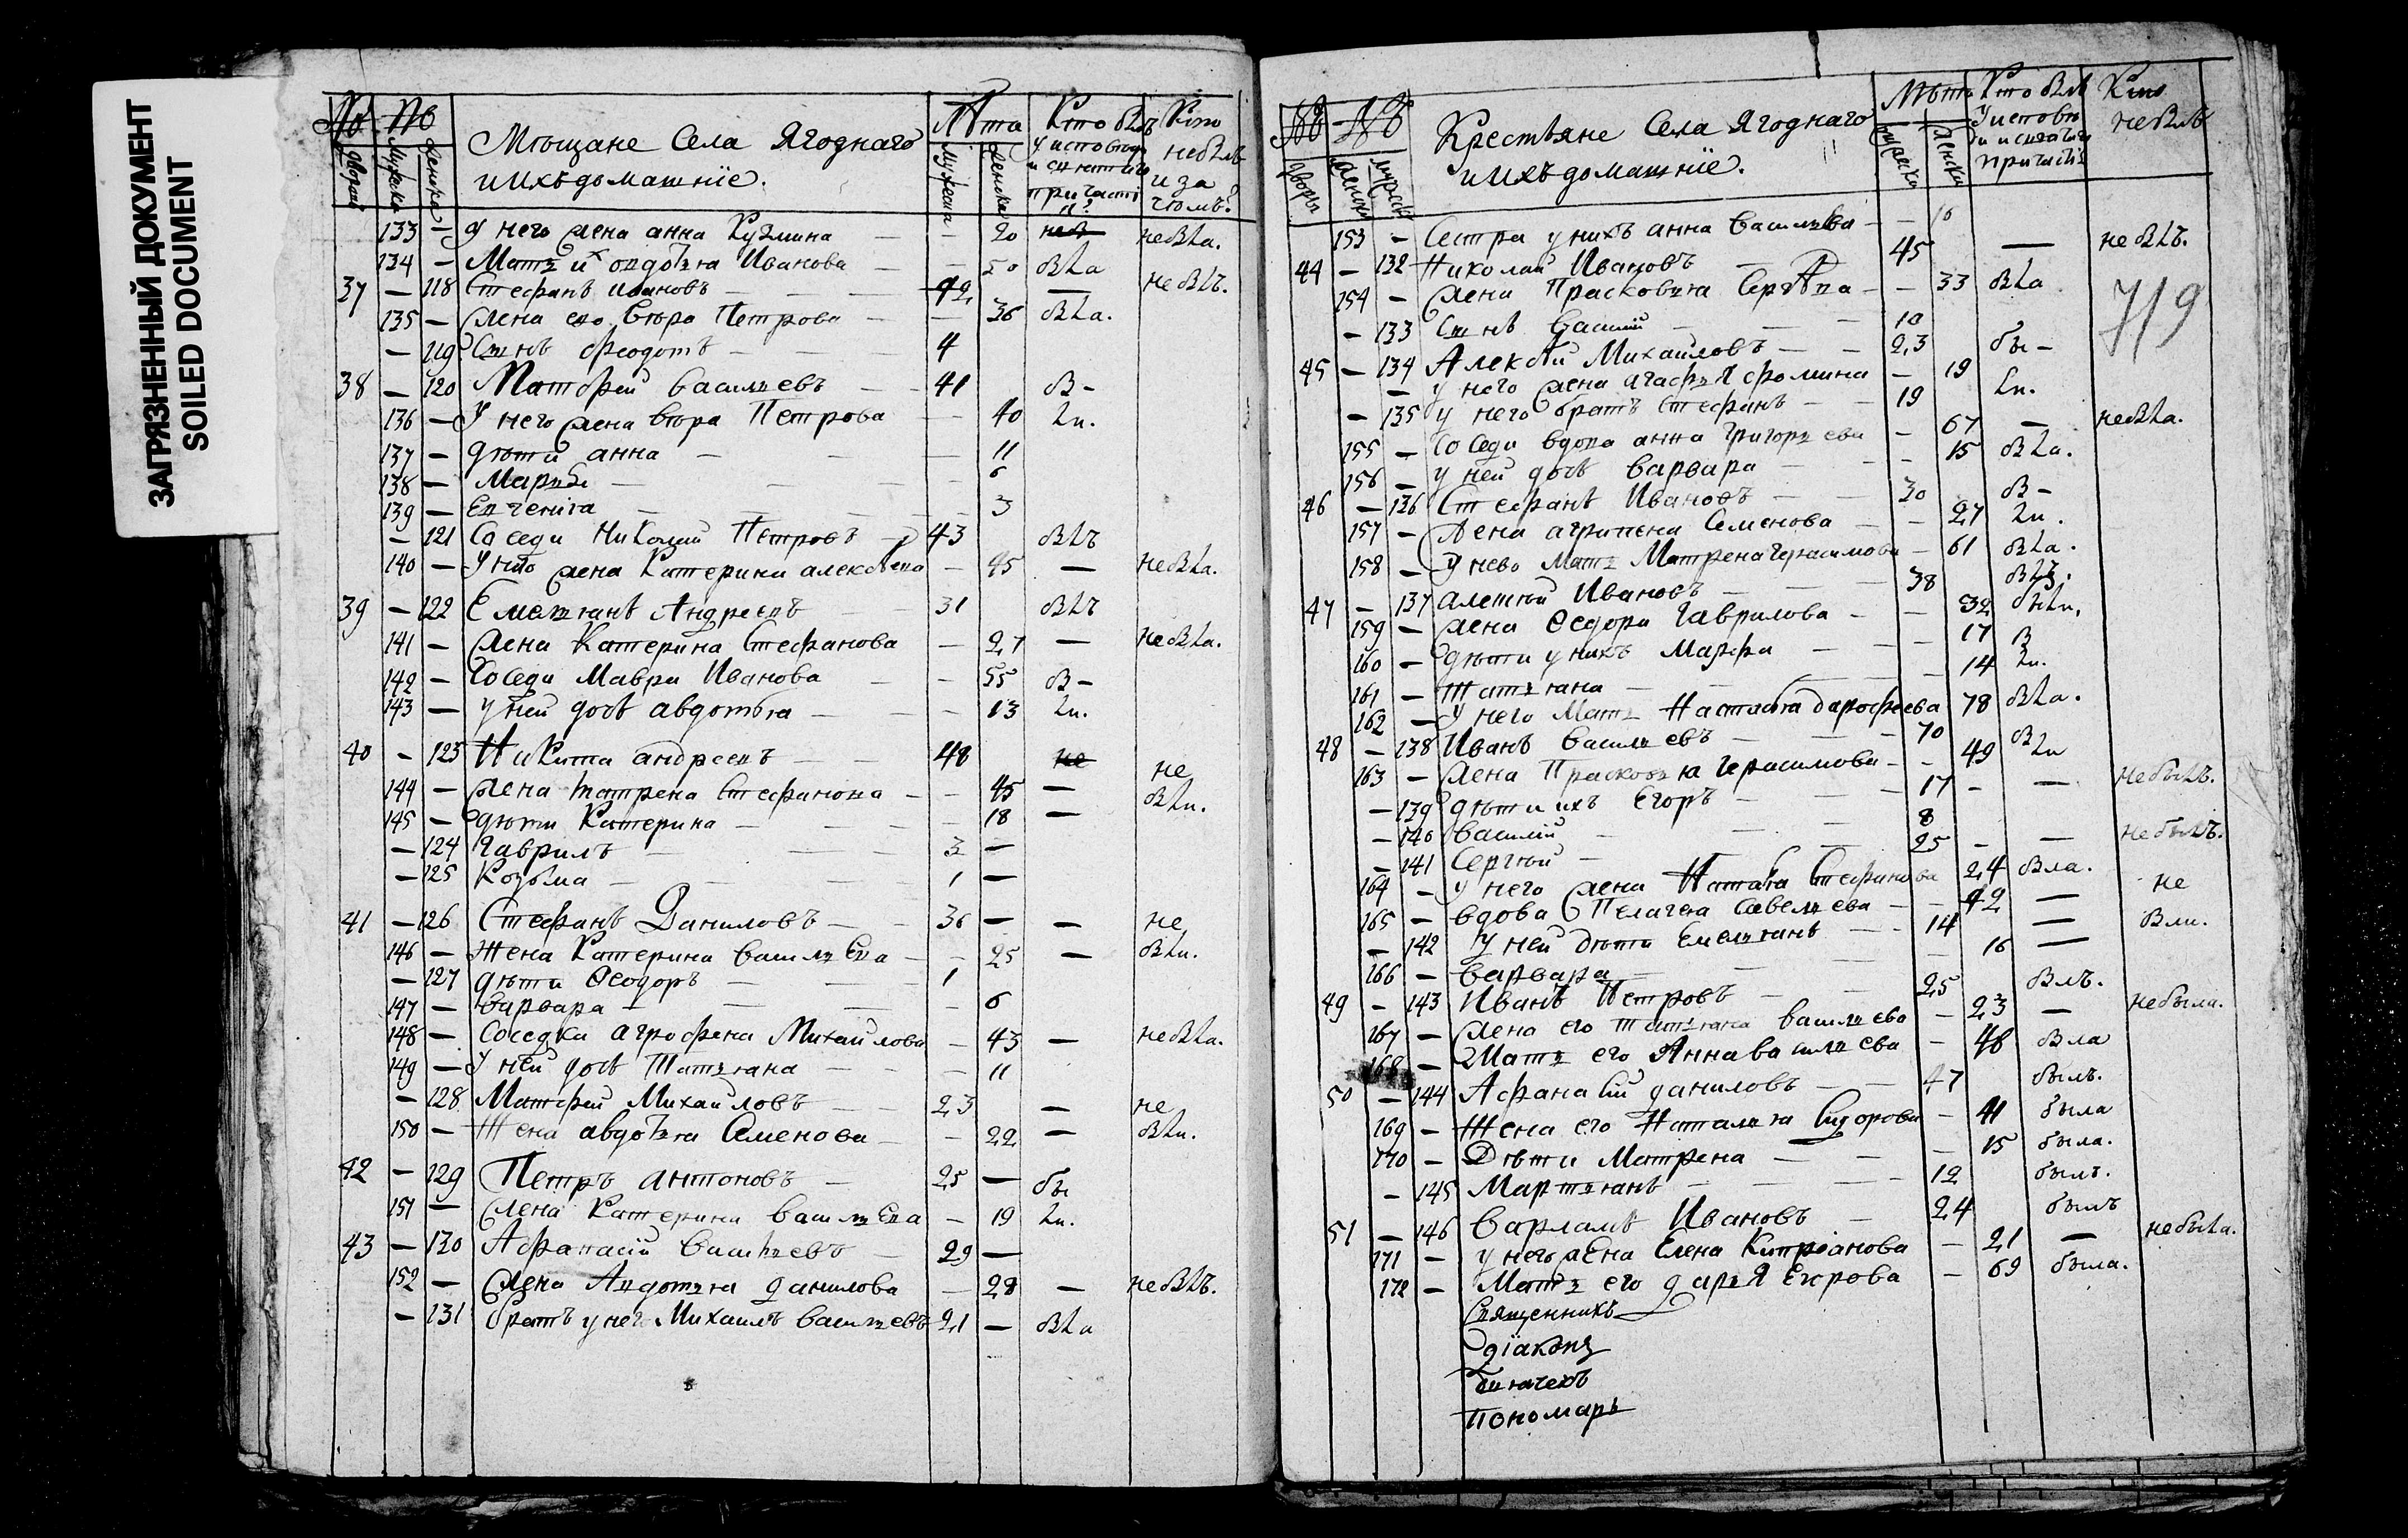 ЗАГРЯЗНЕННЫЙ ДОКУМЕНТ
SOILED DOCUMENT
Мѣщане Села Ягоднаго
и ихъ домашнїе.
Лѣта
Кто былъ у исповѣди и святаго причасті я?
Кто небылъ и за чемъ?
133 — У него жена анна Кузмина — 20 нев небыла.
134 — Мать их вдовья Иванова — 50 была
37 — 118 Стефанъ ивановъ 42 — небылъ.
135 — жена его вѣра Петрова — 36 была.
— 119 Сынъ Феодотъ 4
38 — 120 Матфей васильевъ 41 бы-
136 — У него жена вѣра Петрова — 40 ли.
137 — дѣти анна — 11
138 — Марья — 6
139 — Евгенія — 3
— 121 Соседи Николай Петровъ 43 былъ
140 — У него жена Катерина алексѣева — 45 — небыла.
39 — 122 Емельянъ Андреевъ 31 былъ
141 — жена Катерина Стефанова — 27 — небыла.
142 — Соседи Мавра Иванова — 55 бы-
143 — у ней дочь авдотья — 13 ли.
40 — 123 Никита андреевъ 48 не не
144 — жена матрена Стефанова — 45 — были.
145 — дѣти Катерина — 18 —
— 124 Гаврилъ 3 —
— 125 Козьма 1 —
41 — 126 Стефанъ Даниловъ 36 — — не
146 — Жена Катерина васильева — 25 — были.
— 127 дѣти Феодоръ 1
147 — варвара — 6
148 — Соседка агрофена Михайлова — 43 — небыла.
149 — У ней дочь Татьяна — 11
— 128 Матфей Михайловъ 23 — не
150 — Жена авдотья Семенова — 22 — были.
42 — 129 Петръ антоновъ 25 — бы
151 — жена Катерина васильева — 19 ли.
43 — 130 Афанасій васильевъ 29 —
152 — жена Авдотья данилова — 28 — небылъ.
— 131 братъ у него Михаилъ васильевъ 21 — была
Крестьяне Села Ягоднаго
и ихъ домашнїе.
Лѣты
Кто былъ у исповѣди и святаго причастія
Кто небылъ
719
153 — Сестра у нихъ анна васильева — 16
44 — 132 Николай Ивановъ 45 — небылъ.
154 — жена Прасковья Сергѣева — 33 была
— 133 Сынъ василій 10
45 — 134 Алексѣй Михайловъ 23 бы-
— у него жена агафья фомина — 19 ли.
— 135 у него братъ Стефанъ 19
155 — Соседи вдова анна григорьева — 67 — небыла.
156 — у ней дочь варвара — 15 была.
46 — 136 Стефанъ Ивановъ 30 бы-
157 — жена агрипена Семенова — 27 ли.
158 — У нево Мать Матрена Герасимова — 61 была.
47 — 137 алексѣй Ивановъ 38 былъ.
159 — жена Федора Гаврилова — 32 были,
160 — дѣти у нихъ Марфа — 17 бы
161 — татьяна — 14 ли.
162 — У него Мать Настасья дарофеева 78 была.
48 — 138 Иванъ васильевъ 70 бы
163 — жена Прасковья Герасимова — 49 ли
— 139 дѣти ихъ Егоръ 17 — — небылъ.
— 140 василій 8
— 141 Сергѣй 25 — — небылъ.
164 — у него жена Наталья Стефанова 24 была.
165 — вдова Пелагея Савельева — 42 — не
— 142 у ней дѣти Емельянъ 14 — были.
166 — варвара — 16 —
49 — 143 Иванъ Петровъ 25 былъ.
167 — жена его татьяна васильева — 23 — небыла.
168 — Мать его Анна васильева — 48 была
50 — 144 Афанасій даниловъ 47 былъ.
169 — Жена его Наталья Сидорова — 41 была
170 — Дѣти Матрена — 15 была.
— 145 Мартьянъ 12 былъ.
51 — 146 варламъ Ивановъ 24 былъ
171 — у него жена Елена Кипрсанова — 21 — небыла.
172 — Мать его дарья Егорова — 69 была.
Священникъ
діаконъ
дьячекъ
Пономарь